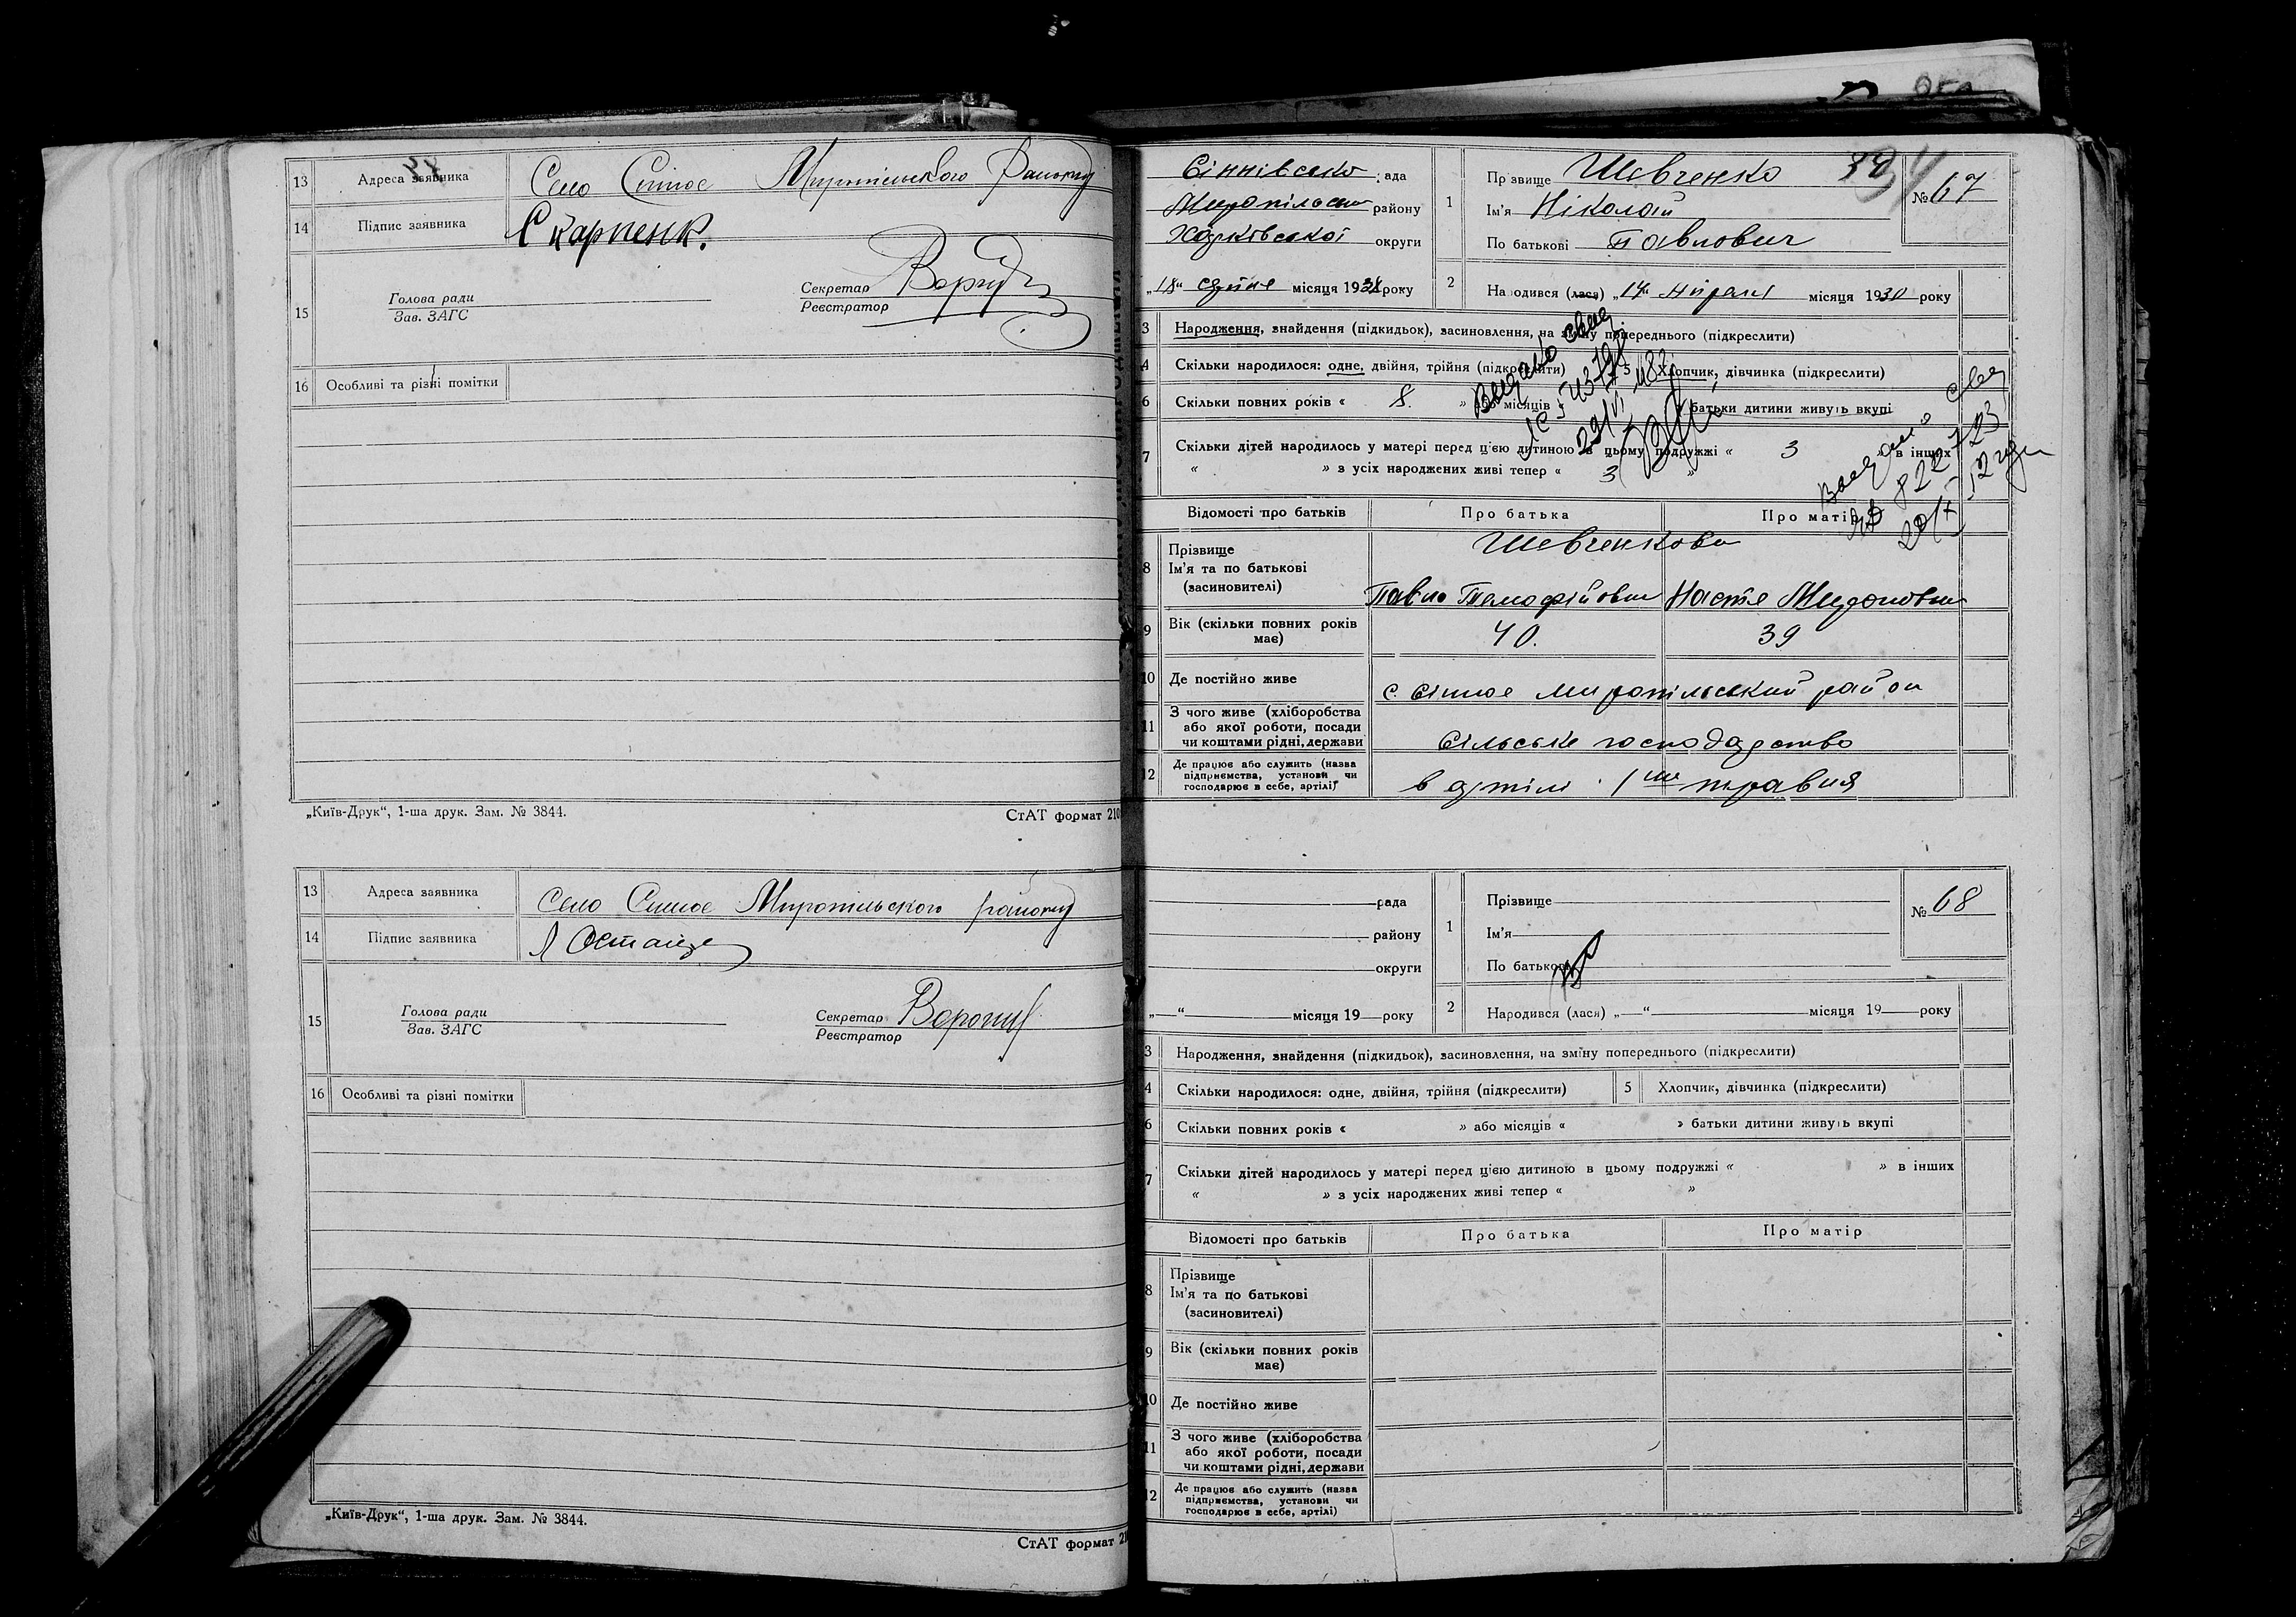 13 Адреса заявника Село Сінноє Миропільського Району
14 Підпис заявника С Карпенк.
15 Голова ради
Зав. ЗАГС
Секретар
Реєстратор
16 Особливі та різні помітки
„Київ-Друк“, 1-ша друк. Зам. № 3844.
СтАТ формат 210
13 Адреса заявника Село Сінноє Миропільського району
14 Підпис заявника
15 Голова ради
Зав. ЗАГС
Секретар
Реєстратор
16 Особливі та різні помітки
„Київ-Друк“, 1-ша друк. Зам. № 3844.
СтАТ формат
Сіннівсько рада
района
Харківської округи
„18“ місяця 19 року
1 Прізвище Шевченко
№ 67
Ім'я Ніколай
По батькові Павлович
2 Народився (лася) „14“ місяця 1930 року
3 Народження, знайдення (підкидьок), засиновлення, на зміну попереднього (підкреслити)
4 Скільки народилося: одне, двійня, трійня (підкреслити) 5 Хлопчик, дівчинка (підкреслити)
6 Скільки повних років « 8. » або місяців батьки дитини живуть вкупі
7 Скільки дітей народилось у матері перед цією дитиною в цьому подружжі « 3 » в інших
« » з усіх народжених живі тепер « 3 »
Відомості про батьків Про батька Про матір
8 Прізвище Шевченкови
Ім'я та по батькові
(засиновителі)
Павло Тимофійович Настя Мироновна
9 Вік (скільки повних років має) 40. 39
10 Де постійно живе с. Сінноє Миропільський район
11 З чого живе (хліборобства
або якої роботи, посади
чи коштами рідні, держави Сільське господарство
12 Де працює або служить (назва
підприємства, установи чи
господарює в себе, артілі) в артілі 1ше травня
рада
району
округи
„ “ місяця 19 року
1 Прізвище
№ 68
Ім'я
По батькові
2 Народився (лася) „ “ місяця 19 року
3 Народження, знайдення (підкидьок), засиновлення, на зміну попереднього (підкреслити)
4 Скільки народилося: одне, двійня, трійня (підкреслити) 5 Хлопчик, дівчинка (підкреслити)
6 Скільки повних років « » або місяців « » батьки дитини живуть вкупі
7 Скільки дітей народилось у матері перед цією дитиною в цьому подружжі « » в інших
« » з усіх народжених живі тепер « »
Відомості про батьків Про батька Про матір
8 Прізвище
Ім'я та по батькові
(засиновителі)
9 Вік (скільки повних років
має)
10 Де постійно живе
11 З чого живе (хліборобства
або якої роботи, посади
чи коштами рідні, держави
12 Де працює або служить (назва
підприємства, установи чи
господарює в себе, артілі)